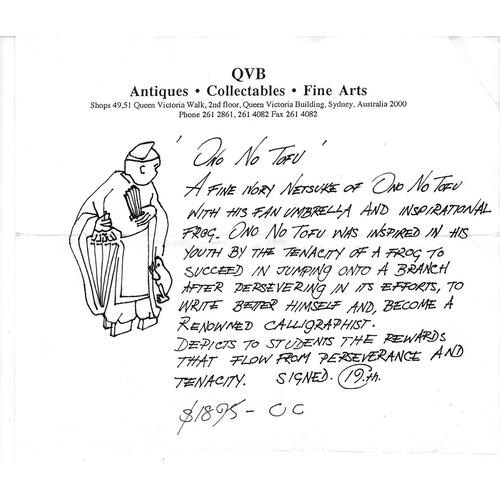 QVB
Antiques • Collectables • Fine Arts
Shops 49,51 Queen Victoria Walk, 2nd floor, Queen Victoria Building, Sydney, Australia 2000
Phone 261 2861, 261 4082 Fax 261 4082
'Ono No Tofu'
A FINE IVORY NETSUKE OF ONO NO TOFU
WITH HIS FAN UMBRELLA AND INSPIRATIONAL
FROG. ONO NO TOFU WAS INSPIRED IN HIS
YOUTH BY THE TENACITY OF A FROG TO
SUCCEED IN JUMPING ONTO A BRANCH
AFTER PERSEVERING IN ITS EFFORTS, TO
WRITE BETTER HIMSELF AND, BECOME A
RENOWNED CALLIGRAPHIST.
DEPICTS TO STUDENTS THE REWARDS
THAT FLOW FROM PERSEVERANCE AND
TENACITY. SIGNED. 19.th.
$1895- OC